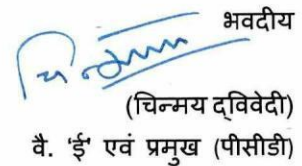 भवदीय
चिन्मय
(चिन्मय द्विवेदी)
वै. 'ई' एवं प्रमुख (पीसीडी)